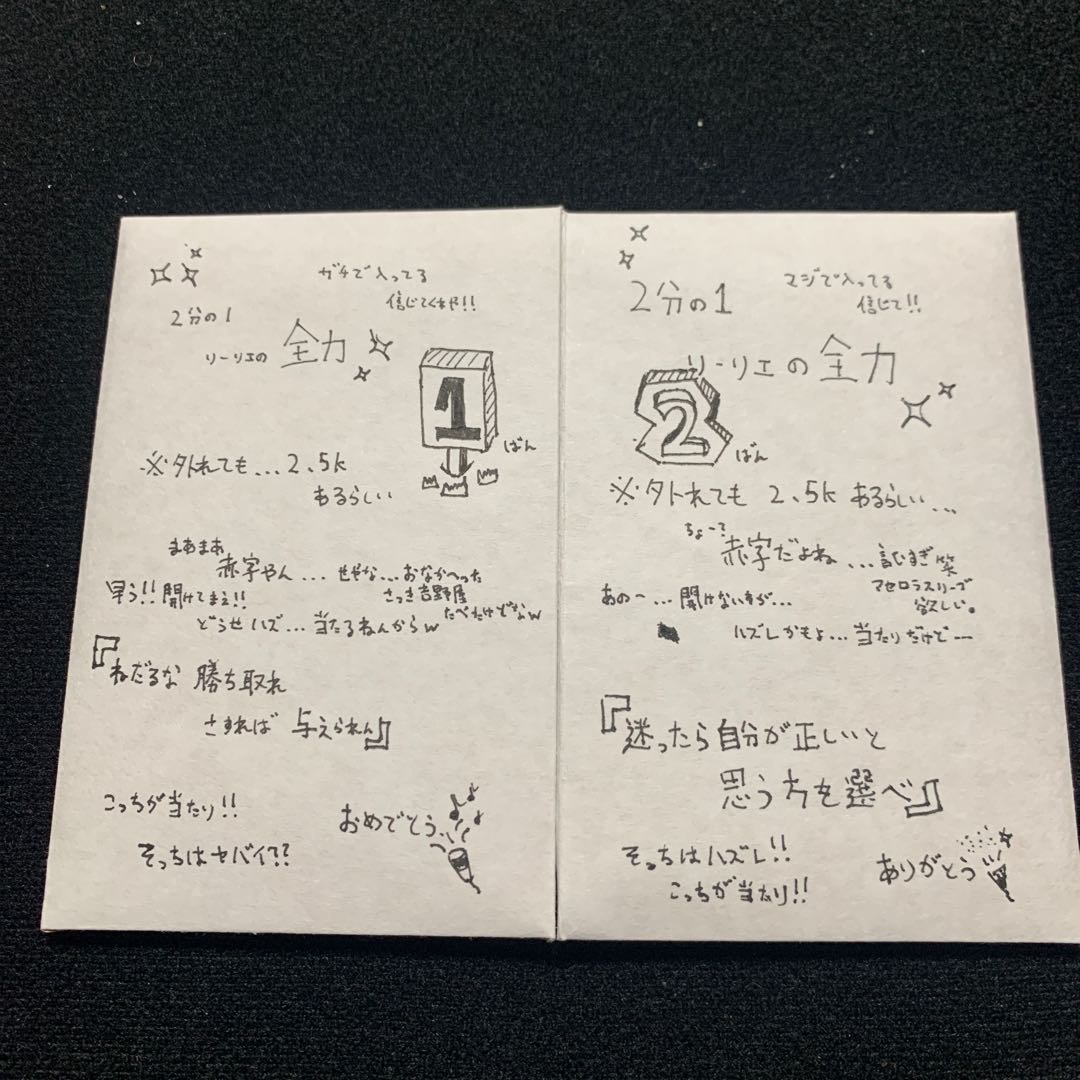 ガチで入ってる
信じてくれや!!
2分の1
リーリエの 全力
1
ばん
※外れても...2.5k
あるらしい
まあまあ
赤字やん... せやな...おなかへった
早う!!開けてまえ!! さっき吉野屋
たべたけどなw
どうせハズ...当たるねんからw
『ねだるな 勝ち取れ
さすれば 与えられん』
こっちが当たり!!
おめでとう
そっちはヤバイ??
マジで入ってる
2分の1
信じて!!
リーリエの全力
2
ばん
※外れても 2.5k あるらしい...
ちょー?
赤字だよね...詰むすぎ 笑
マセロラスリーブ
欲しい。
あのー...開けないすが...
ハズレかもよ...当たりだけどー
『迷ったら自分が正しいと
思う方を選べ』
そっちはハズレ!!
ありがとう
こっちが当たり!!